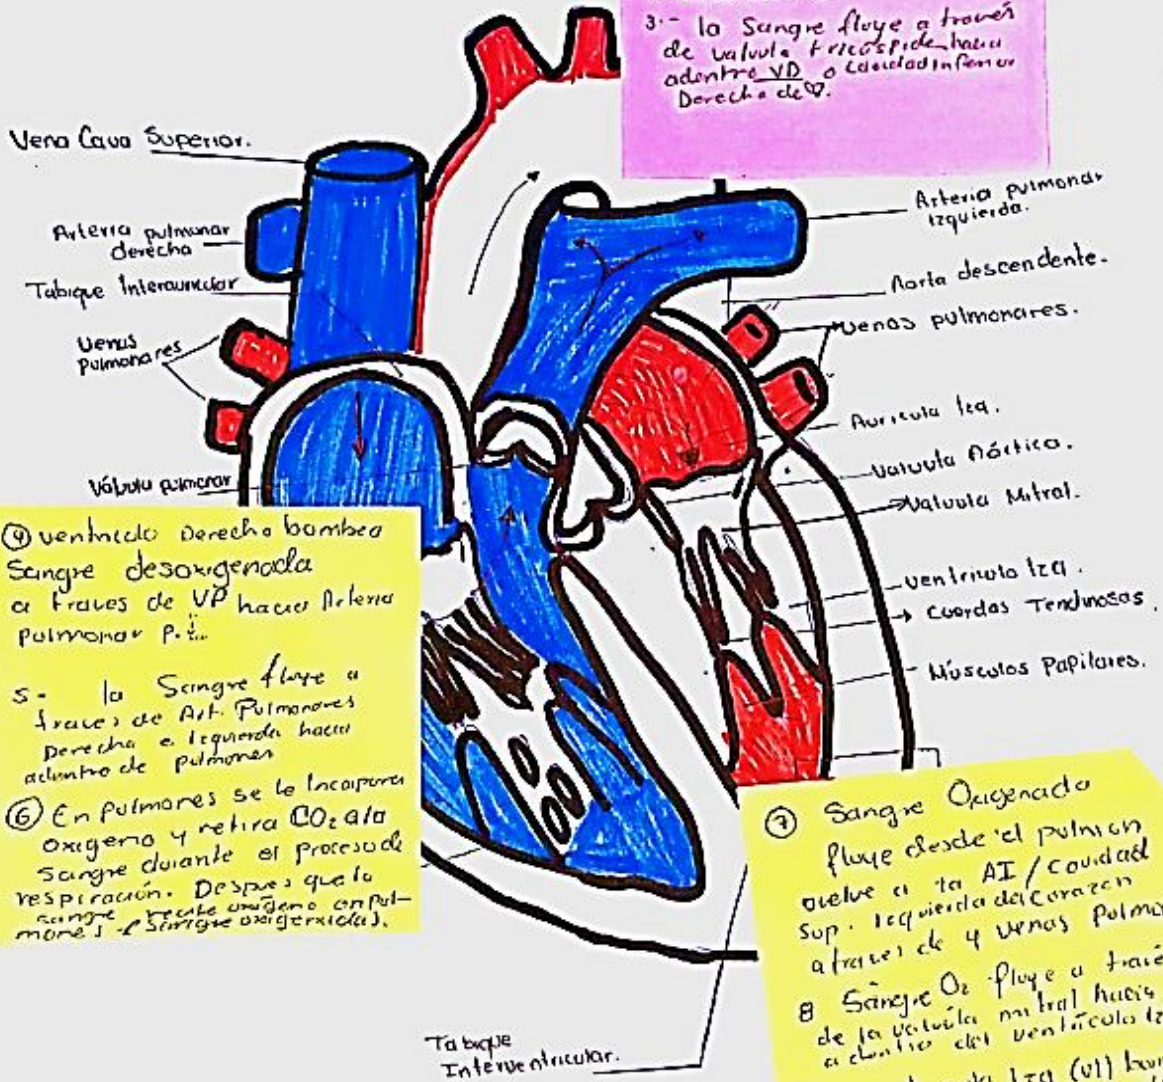 3.- la Sangre fluye a través
de valvula tricúspide hacia
adentro VD o cavidad inferior
Derecha de
Vena Cava Superior.
Arteria pulmonar
derecha
Tabique Interauricular
Venas
Pulmonares
Válvula pulmonar
Arteria pulmonar
Izquierda.
Aorta descendente.
Venas pulmonares.
Auricula Izq.
Valvula Aórtica.
Valvula Mitral.
Ventriculo Izq.
Cuerdas Tendinosas.
Músculos Papilares.
④ ventriculo Derecho bombea
Sangre desoxigenada
a traves de VP hacia Arteria
Pulmonar
5- la Sangre fluye a
traves de Art. Pulmonares
Derecha e Izquierda hacia
adentro de pulmones
⑥ En Pulmones se le Incorpora
oxigeno y retira CO₂ a la
Sangre durante el proceso de
respiración. Despues que la
sangre recibe oxigeno en pul-
mones (Sangre oxigenada).
⑦ Sangre Oxigenada
fluye desde el pulmon
vuelve a la AI / Cavidad
Sup. Izquierda del Corazon
a traves de 4 venas Pulmo
8 Sangre O₂ fluye a travé
de la valvula mitral hacia
adentro del ventriculo Iz
Izq (VI) bom
Tabique
Interventricular.